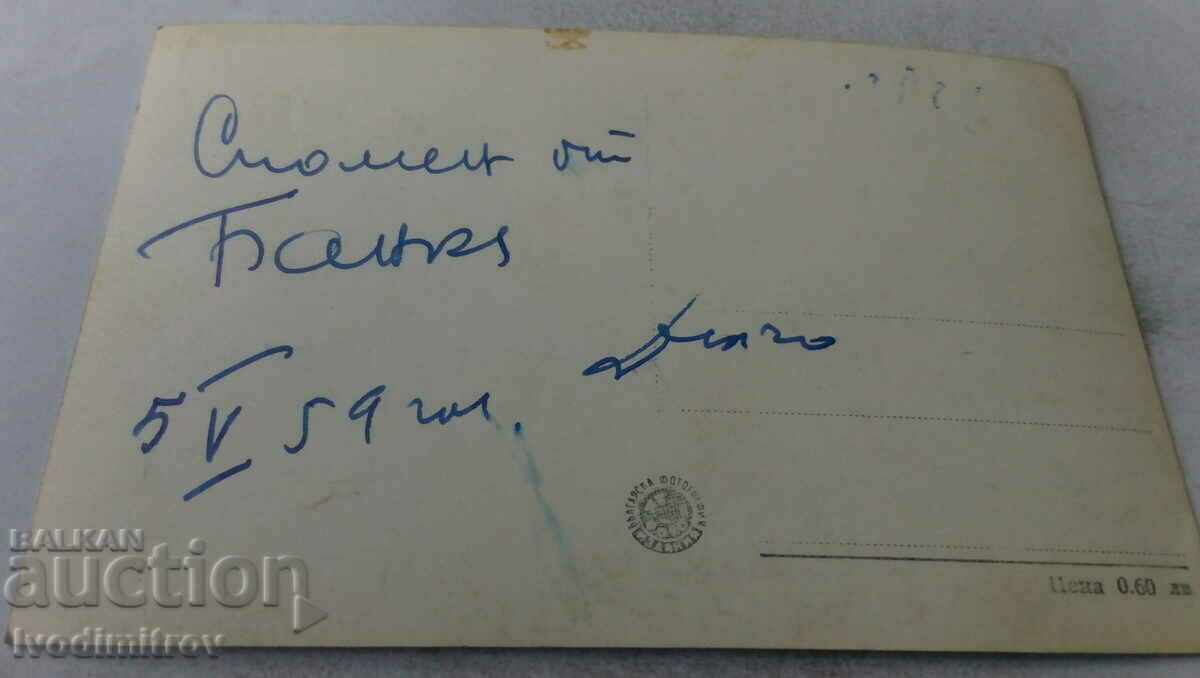 Спомен от
Банкя
5 V 59 год.
БЪЛГАРСКА ФОТОГРАФИЯ
Цена 0.60 лв
BALKAN
auction
Ivodimitrov